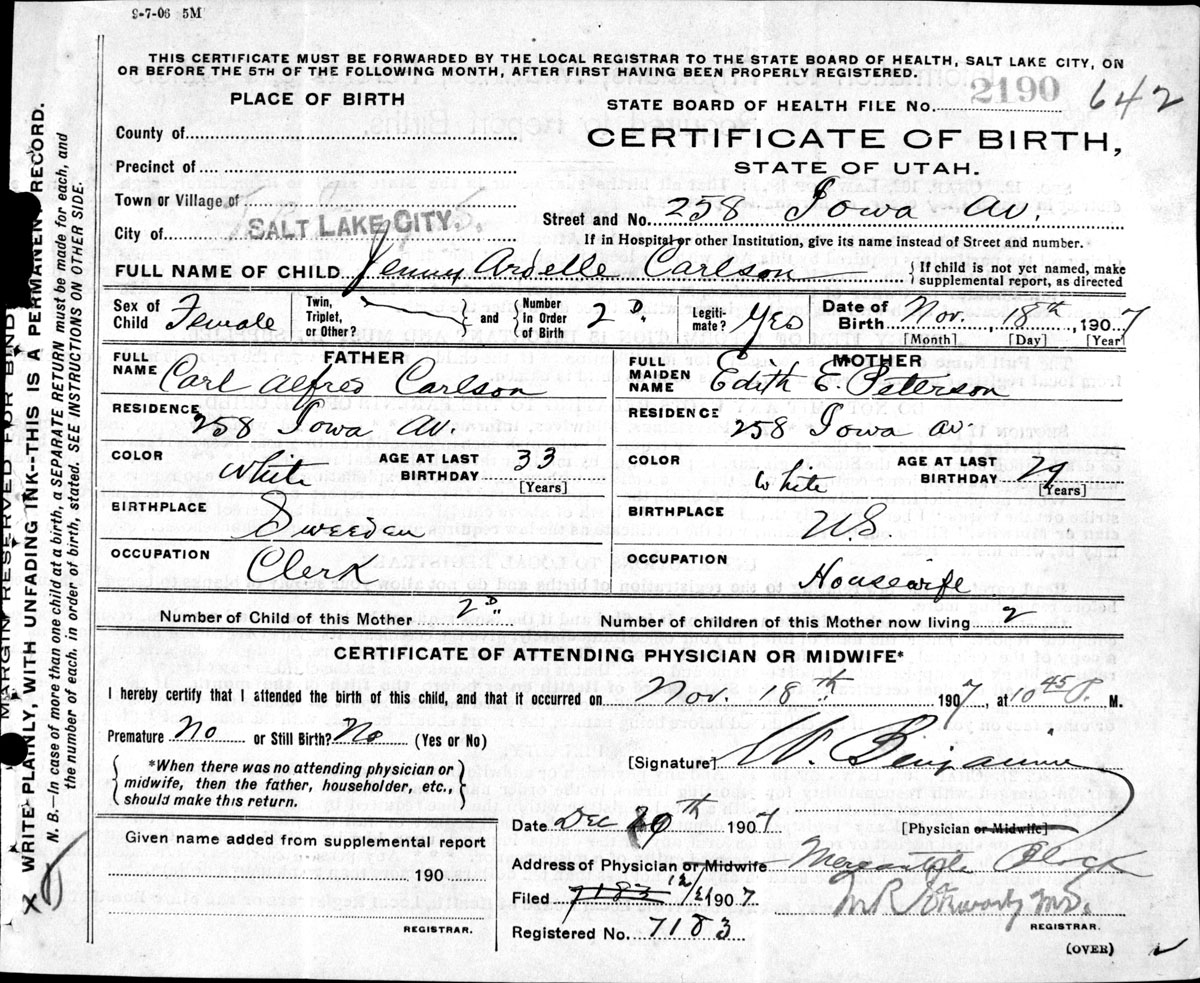 9-7-06 5M
THIS CERTIFICATE MUST BE FORWARDED BY THE LOCAL REGISTRAR TO THE STATE BOARD OF HEALTH, SALT LAKE CITY, ON
OR BEFORE THE 5TH OF THE FOLLOWING MONTH, AFTER FIRST HAVING BEEN PROPERLY REGISTERED.
PLACE OF BIRTH
STATE BOARD OF HEALTH FILE No. 2190 642
County of
CERTIFICATE OF BIRTH,
STATE OF UTAH.
Precinct of
Town or Village of
Street and No. 258 Iowa Av.
City of SALT LAKE CITY
If in Hospital or other Institution, give its name instead of Street and number.
FULL NAME OF CHILD Jenny Ardelle Carlson
{If child is not yet named, make
supplemental report, as directed
Sex of Child Female
Twin, Triplet, or Other?
and
Number in Order of Birth 2 D
Legiti- mate? Yes
Date of Birth Nov. 18th, 1907
[Month] [Day] [Year]
FATHER
FULL NAME Carl Alfred Carlson
MOTHER
FULL MAIDEN NAME Edith E Peterson
RESIDENCE 258 Iowa Av.
RESIDENCE 258 Iowa Av.
COLOR White AGE AT LAST BIRTHDAY 33 [Years]
COLOR White AGE AT LAST BIRTHDAY 29 [Years]
BIRTHPLACE Sweeden
BIRTHPLACE U.S.
OCCUPATION Clerk
OCCUPATION Housewife
Number of Child of this Mother 2 D
Number of children of this Mother now living 2
CERTIFICATE OF ATTENDING PHYSICIAN OR MIDWIFE*
I hereby certify that I attended the birth of this child, and that it occurred on Nov. 18th 1907, at 10 45 P. M.
Premature No or Still Birth? No (Yes or No)
[Signature] W. Benjamin
{*When there was no attending physician or
midwife, then the father, householder, etc.,
should make this return.}
Date Dec 1907
[Physician or Midwife]
Given name added from supplemental report
Address of Physician or Midwife Mercantile Block
190
Filed 7183 12/ 1907
REGISTRAR.
REGISTRAR.
Registered No. 7183
(OVER)
MARGIN RESERVED FOR BIND
WRITE PLAINLY, WITH UNFADING INK--THIS IS A PERMANENT RECORD.
N. B.—In case of more than one child at a birth, a SEPARATE RETURN must be made for each, and
the number of each, in order of birth, stated. SEE INSTRUCTIONS ON OTHER SIDE.